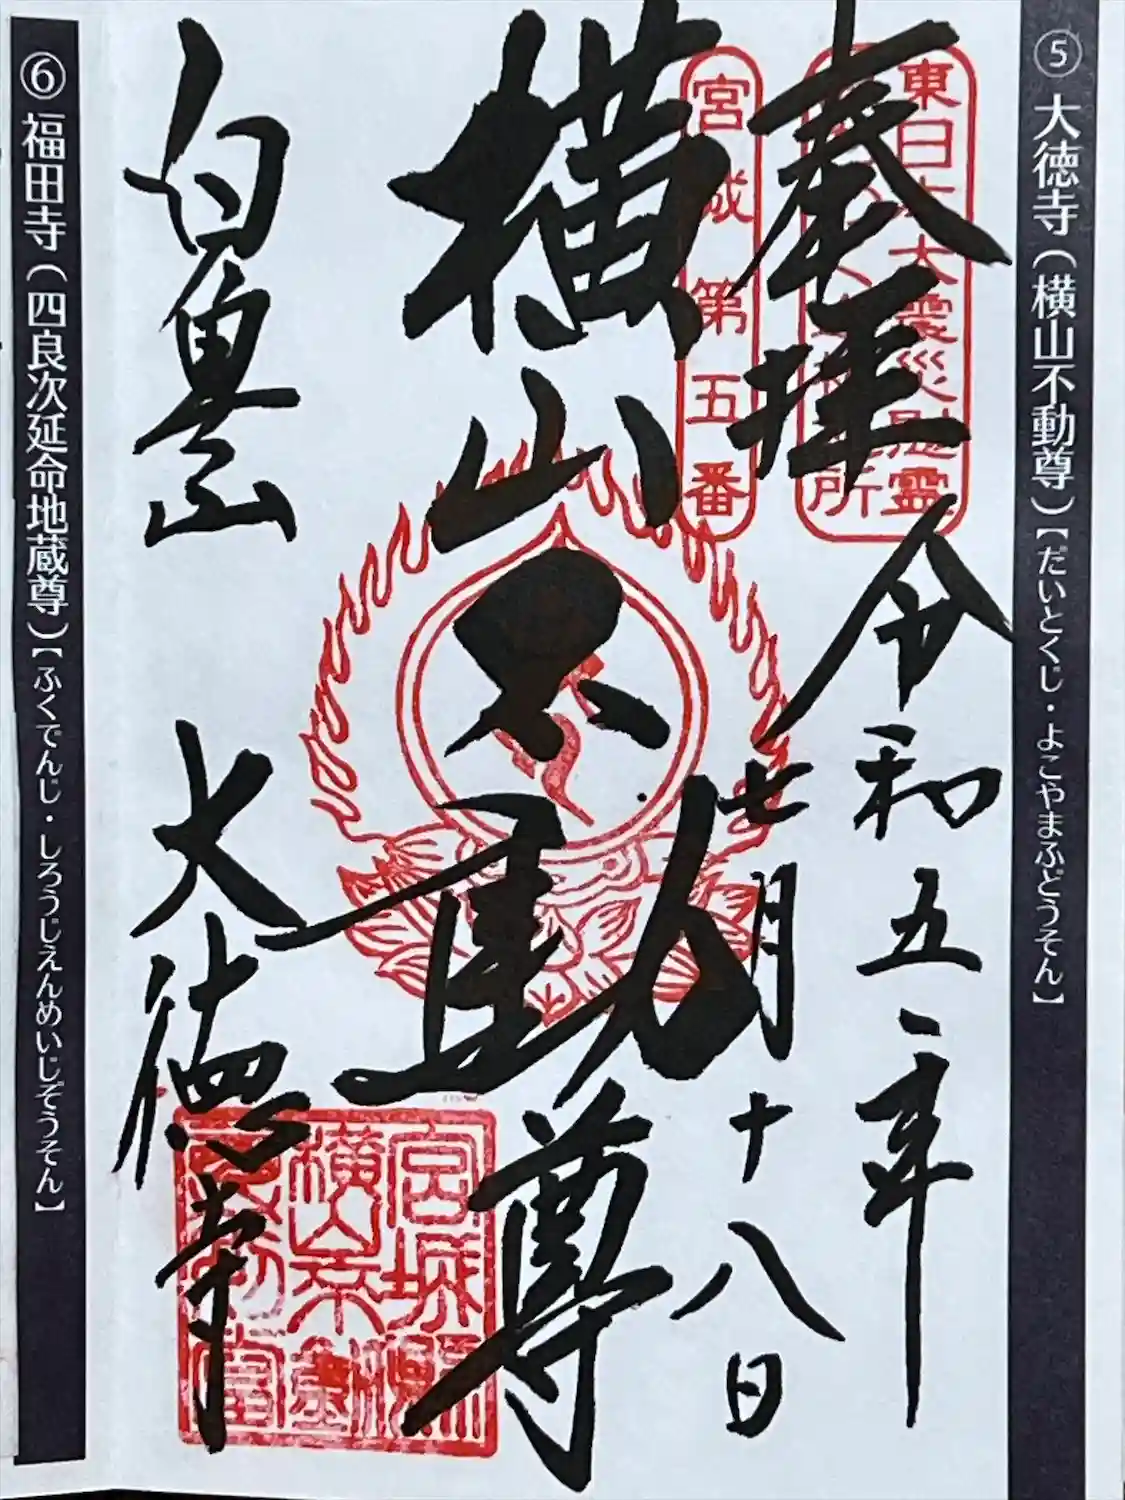 ⑤ 大徳寺(横山不動尊)【だいとくじ・よこやまふどうそん】
東日本大震災慰霊
所
奉拝 令和五年
七月十八日
宮城第五番
横山不動尊
白魚山 大徳寺
宮城縣
横山不動
堂
⑥ 福田寺(四良次延命地蔵尊)【ふくでんじ・しろうじえんめいじぞうそん】